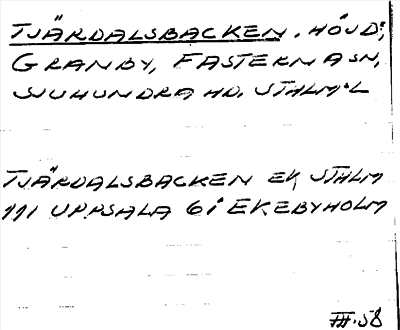 TJÄRDALSBACKEN. HÖJD;
GRANBY, FASTERNA SN,
SJUHUNDRA HD. STHLM:L
TJÄRDALSBACKEN EK STHLM
111 UPPSALA 6i EKEBYHOLM
III.58